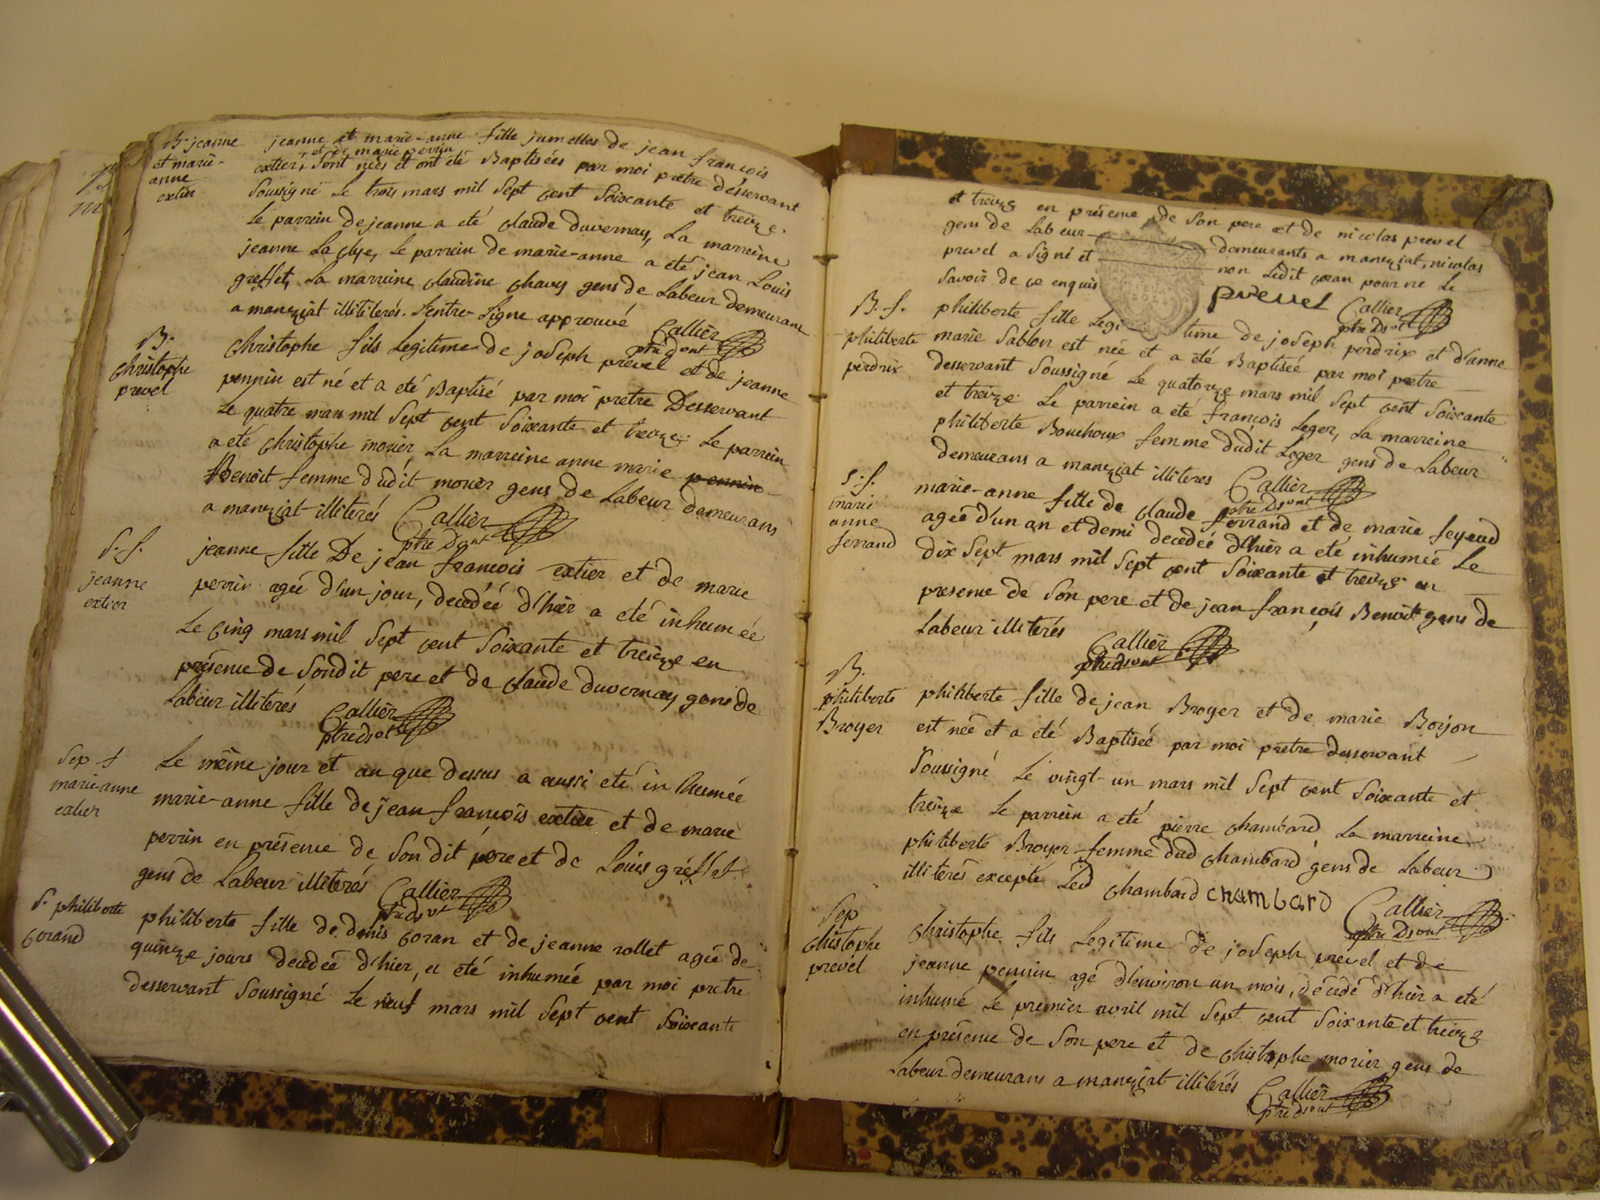 B. jeanne
et marie-
anne
extier
jeanne et marie-anne fille jumelles de jean françois
et de marie perrin
extier, sont nées et ont été Baptisées par moi pretre desservant
soussigné le trois mars mil sept cent soixante et treize.
le parrein de jeanne a eté claude duvernay, la marreine
jeanne la clye, le parrein de marie-anne a été jean Louis
greffet, la marreine claudine chavy gens de labeur demeurant
a manziat illiterés. l'entre-ligne approuvé
Callier
ptre dsvt
B.
christophe
prevel
christophe fils legitime de joseph prevel et de jeanne
pennin est né et a eté Baptisé par moi pretre Desservant
Le quatre mars mil sept cent soixante et treize Le parrein
a eté christophe morier, La marreine anne marie pennin
Benoit femme dudit morier gens de Labeur demeurans
a manziat illiterés
Callier
ptre dsvt
S. f.
jeanne
extier
jeanne fille De jean francois extier et de marie
perrin agée d'un jour, decedéé d'hier a eté inhumée
Le cinq mars mil sept cent soixante et treize en
présence de sondit pere et de claude duvernay gens de
Labeur illiterés
Callier
ptre dsvt
Sep f
marie anne
extier
Le même jour et an que dessus a aussi eté inhumée
marie-anne fille de jean francois extier et de marie
perrin en présence de son dit pere et de Louis greffet
gens de Labeur illiterés
Callier
ptre dsvt
S. philiberte
gorand
philiberte fille de denis goran et de jeanne rollet agée de
quinze jours decedée d'hier, a eté inhumée par moi pretre
desservant soussigné Le neuf mars mil sept cent soixante
et treize en présence de son pere et de nicolas prevel
gens de labeur demeurants a manziat, nicolas
prevel a signé et non Ledit goran pour ne le
savoir de ce enquis
prevel
Callier
ptre dsvt
B. f.
philiberte
perdrix
philiberte fille legitime de joseph perdrix et d'anne
marie sablon est née et a été Baptisée par moi pretre
desservant soussigné Le quatorze mars mil sept cent soixante
et treize Le parrein a été françois Leger, La marreine
philiberte Bouchoux femme dudit Leger gens de Labeur
demeurans a manziat illiteres
Callier
ptre dsvt
S. f.
marie
anne
ferrand
marie-anne fille de claude ferrand et de marie feyeud
agée d'un an et demi decedéé d'hier a eté inhumée Le
dix sept mars mil sept cent soixante et treize en
presence de son pere et de jean françois Benoit gens de
Labeur illiterés
Callier
ptre dsvt
B.
philiberte
Broyer
philiberte fille de jean Broyer et de marie Borjon
est née et a eté Baptisée par moi pretre desservant
soussigné Le vingt-un mars mil sept cent soixante et
treize Le parrein a eté pierre chambard La marreine
philiberte Broyer femme dud chambard gens de Labeur
illiterés excepté Led chambard
chambard
Callier
ptre dsvt
Sep
christophe
prevel
christophe fils Legitime de joseph prevel et de
jeanne pennin agé d'environ un mois, décédé d'hier a eté
inhumé Le premier avril mil sept cent soixante et treize
en présence de son pere et de christophe morier gens de
Labeur demeurans a manziat illiterés
Callier
ptre dsvt